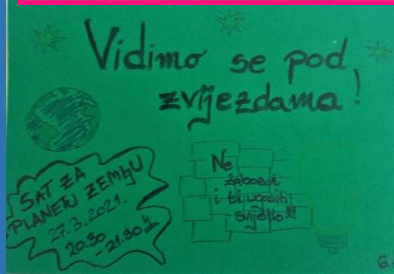 Vidimo se pod
zvijezdama!
SAT ZA
PLANETU ZEMLJU
27.3.2021.
20.30 - 21.30 h
Ne
zaboravi
i ti ugasiti
svjetlo!!!
6.